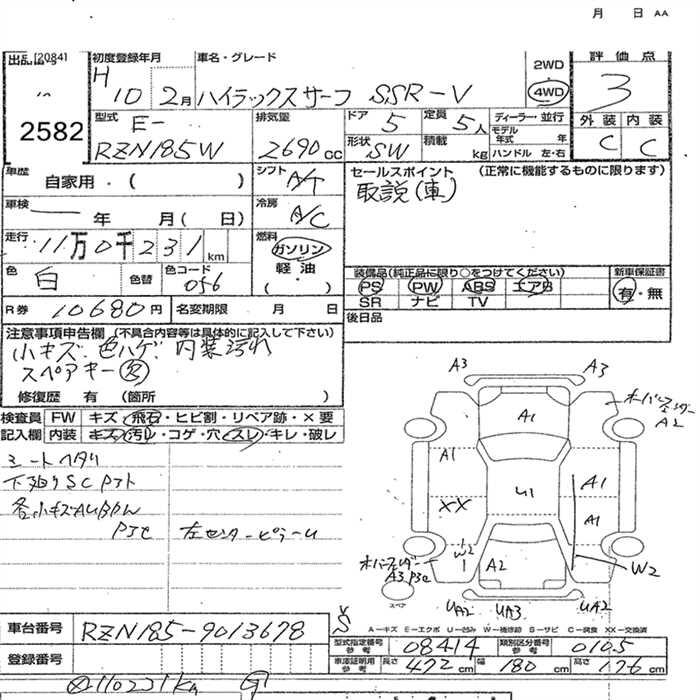 月 日 AA
出品 [2084]
初度登録年月
車名・グレード
2WD
4WD
評価点
3
H 10 2月 ハイラックスサーフ SSR-V
2582
型式
E-
RZN185W
排気量
2690 cc
ドア 5
定員 5人
ディーラー・並行
モデル年式 年
外装 内装
C C
形状 SW
積載 kg
ハンドル 左・右
車歴
自家用・( )
シフト
A/T
セールスポイント (正常に機能するものに限ります)
取説(車)
車検 年 月( 日)
冷房
A/C
走行 11万0千231km
燃料
ガソリン
軽油
( ・ )
色 白
色替
色コード
056
装備品(純正品に限り○をつけてください)
新車保証書
PS PW ABS エアB
有・無
SR ナビ TV
R券 10680円
名変期限 月 日
後日品
注意事項申告欄 (不具合内容等は具体的に記入して下さい)
小キズ、色ハゲ、内装汚れ
スペアキー
修復歴 有 (箇所 )
検査員 FW キズ・飛石・ヒビ割・リペア跡・×要
記入欄 内装 キズ・汚レ・コゲ・穴・スレ・キレ・破レ
シートヘタリ
下廻りSC
左センターピラーU
A3 A3
A1
オーバーフェンダー
A2
A1
A1
U1
XX
A1
W2
A2
オーバーフェンダー
A3
W2
スペア
UA2 UA3 UA2
A-キズ E-エクボ U-凹み W-補修跡 S-サビ C-腐食 XX-交換済
車台番号 RZN185-9013678
型式指定番号 参考 08414
類別区分番号 参考 0105
登録番号
車庫証明用 参考 長さ 472cm 幅 180cm 高さ 176cm
110231km